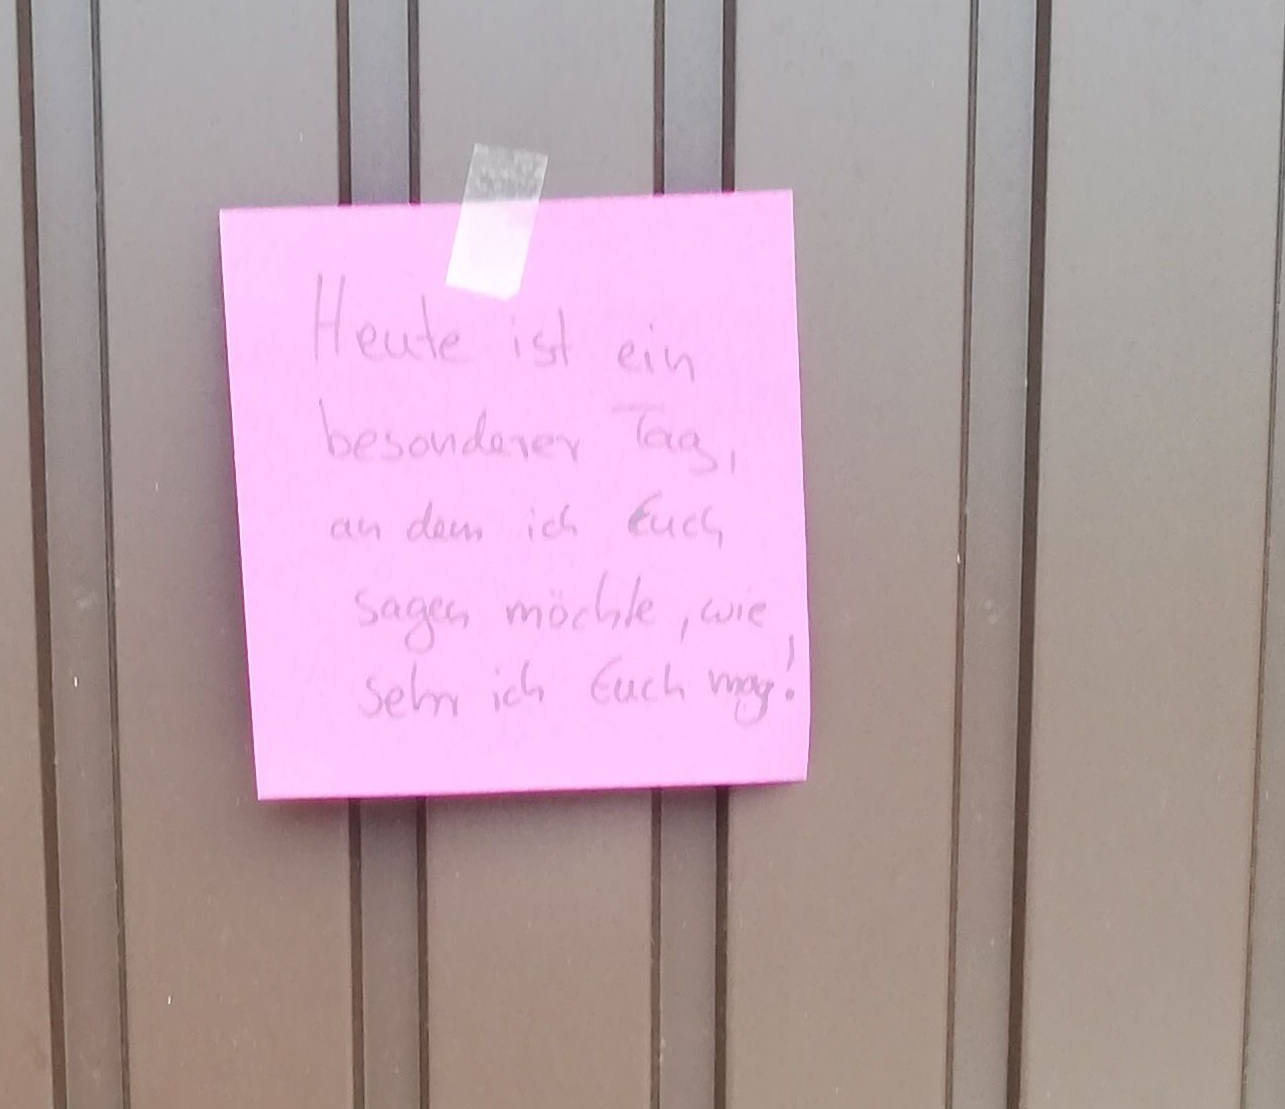 Heute ist ein
besonderer Tag,
an dem ich Euch
sagen möchte, wie
sehr ich Euch mag!